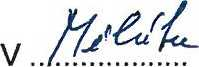 V Mělníku